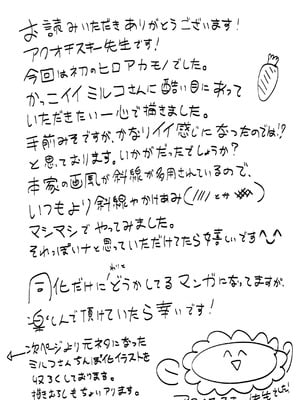 お読みいただきありがとうございます!
アクオチスキー先生です!
今回は初のヒロアカモノでした。
かっこイイミルコさんに酷い目にあって
いただきたい一心で描きました。
手前みそですが、かなりイイ感じになったのでは!?
と思っております。いかがだったでしょうか?
本家の画風が斜線が多用されているので、
いつもより斜線やかけあみ(//// とか )
マシマシでやってみました。
それっぽいナと思っていただけてたら嬉しいです^^
同化だけにどうかしてるマンガになってますが、
楽しんで頂けていたら幸いです!
←次ページより元ネタになった
ミルコさんちんぽ化イラストを
収ろくしております。
描きおろしもちょいアリます。
アクオチスキー先生でした!